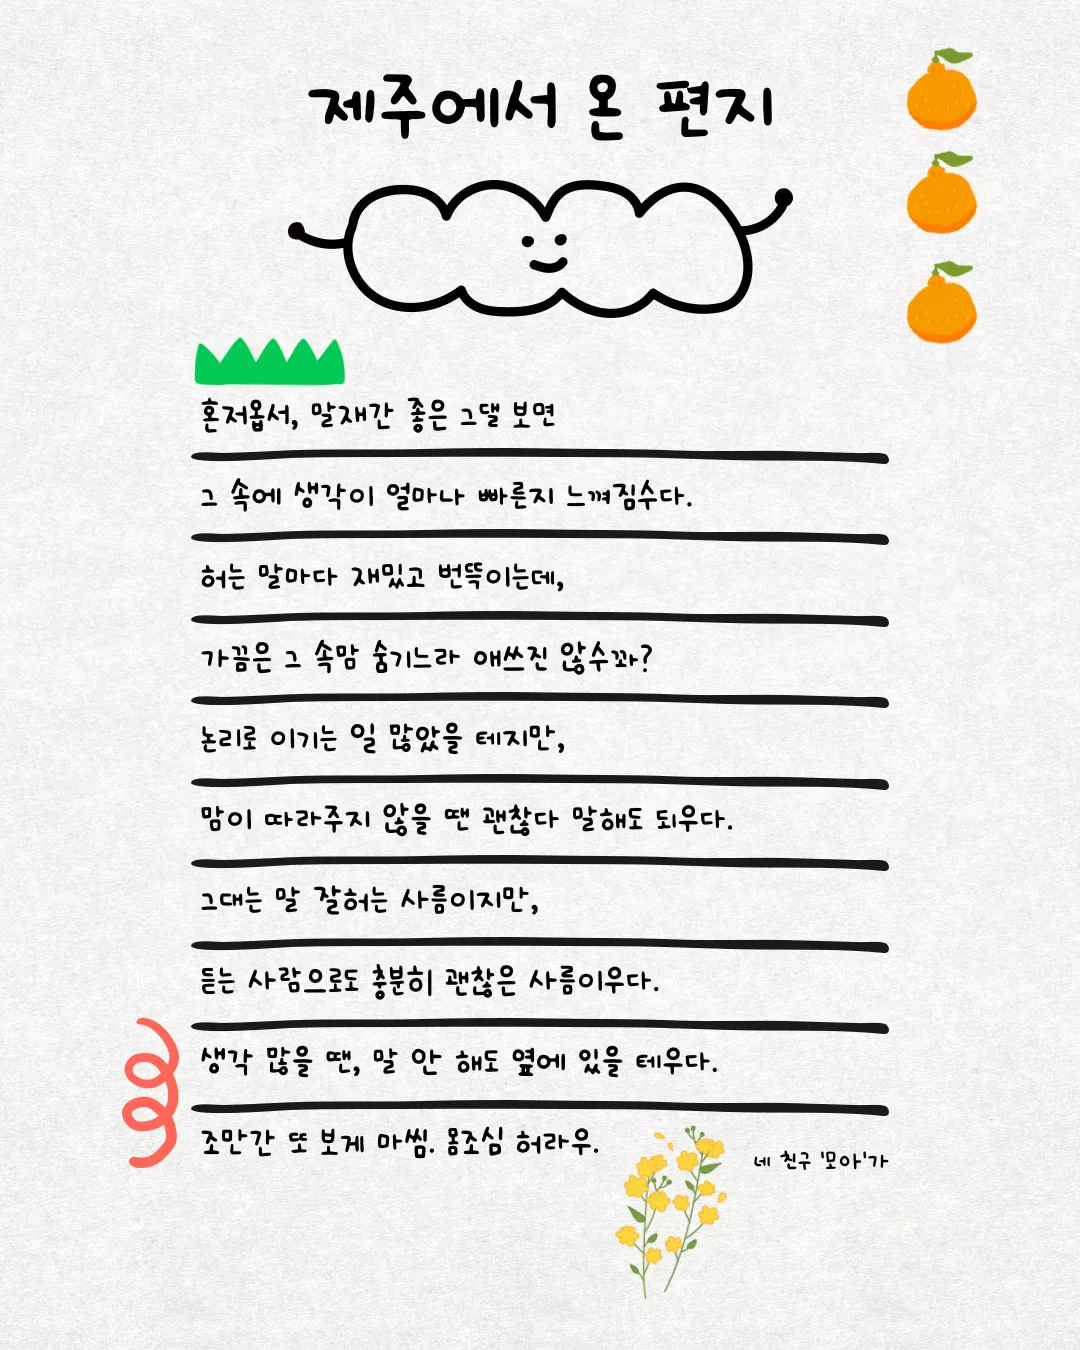 제주에서 온 편지
혼저옵서, 말재간 좋은 그댈 보면
그 속에 생각이 얼마나 빠른지 느껴짐수다.
허는 말마다 재밌고 번뜩이는데,
가끔은 그 속맘 숨기느라 애쓰진 않수꽈?
논리로 이기는 일 많았을 테지만,
맘이 따라주지 않을 땐 괜찮다 말해도 되우다.
그대는 말 잘허는 사름이지만,
듣는 사람으로도 충분히 괜찮은 사름이우다.
생각 많을 땐, 말 안 해도 옆에 있을 테우다.
조만간 또 보게 마씸. 몸조심 허라우.
네 친구 '모아'가